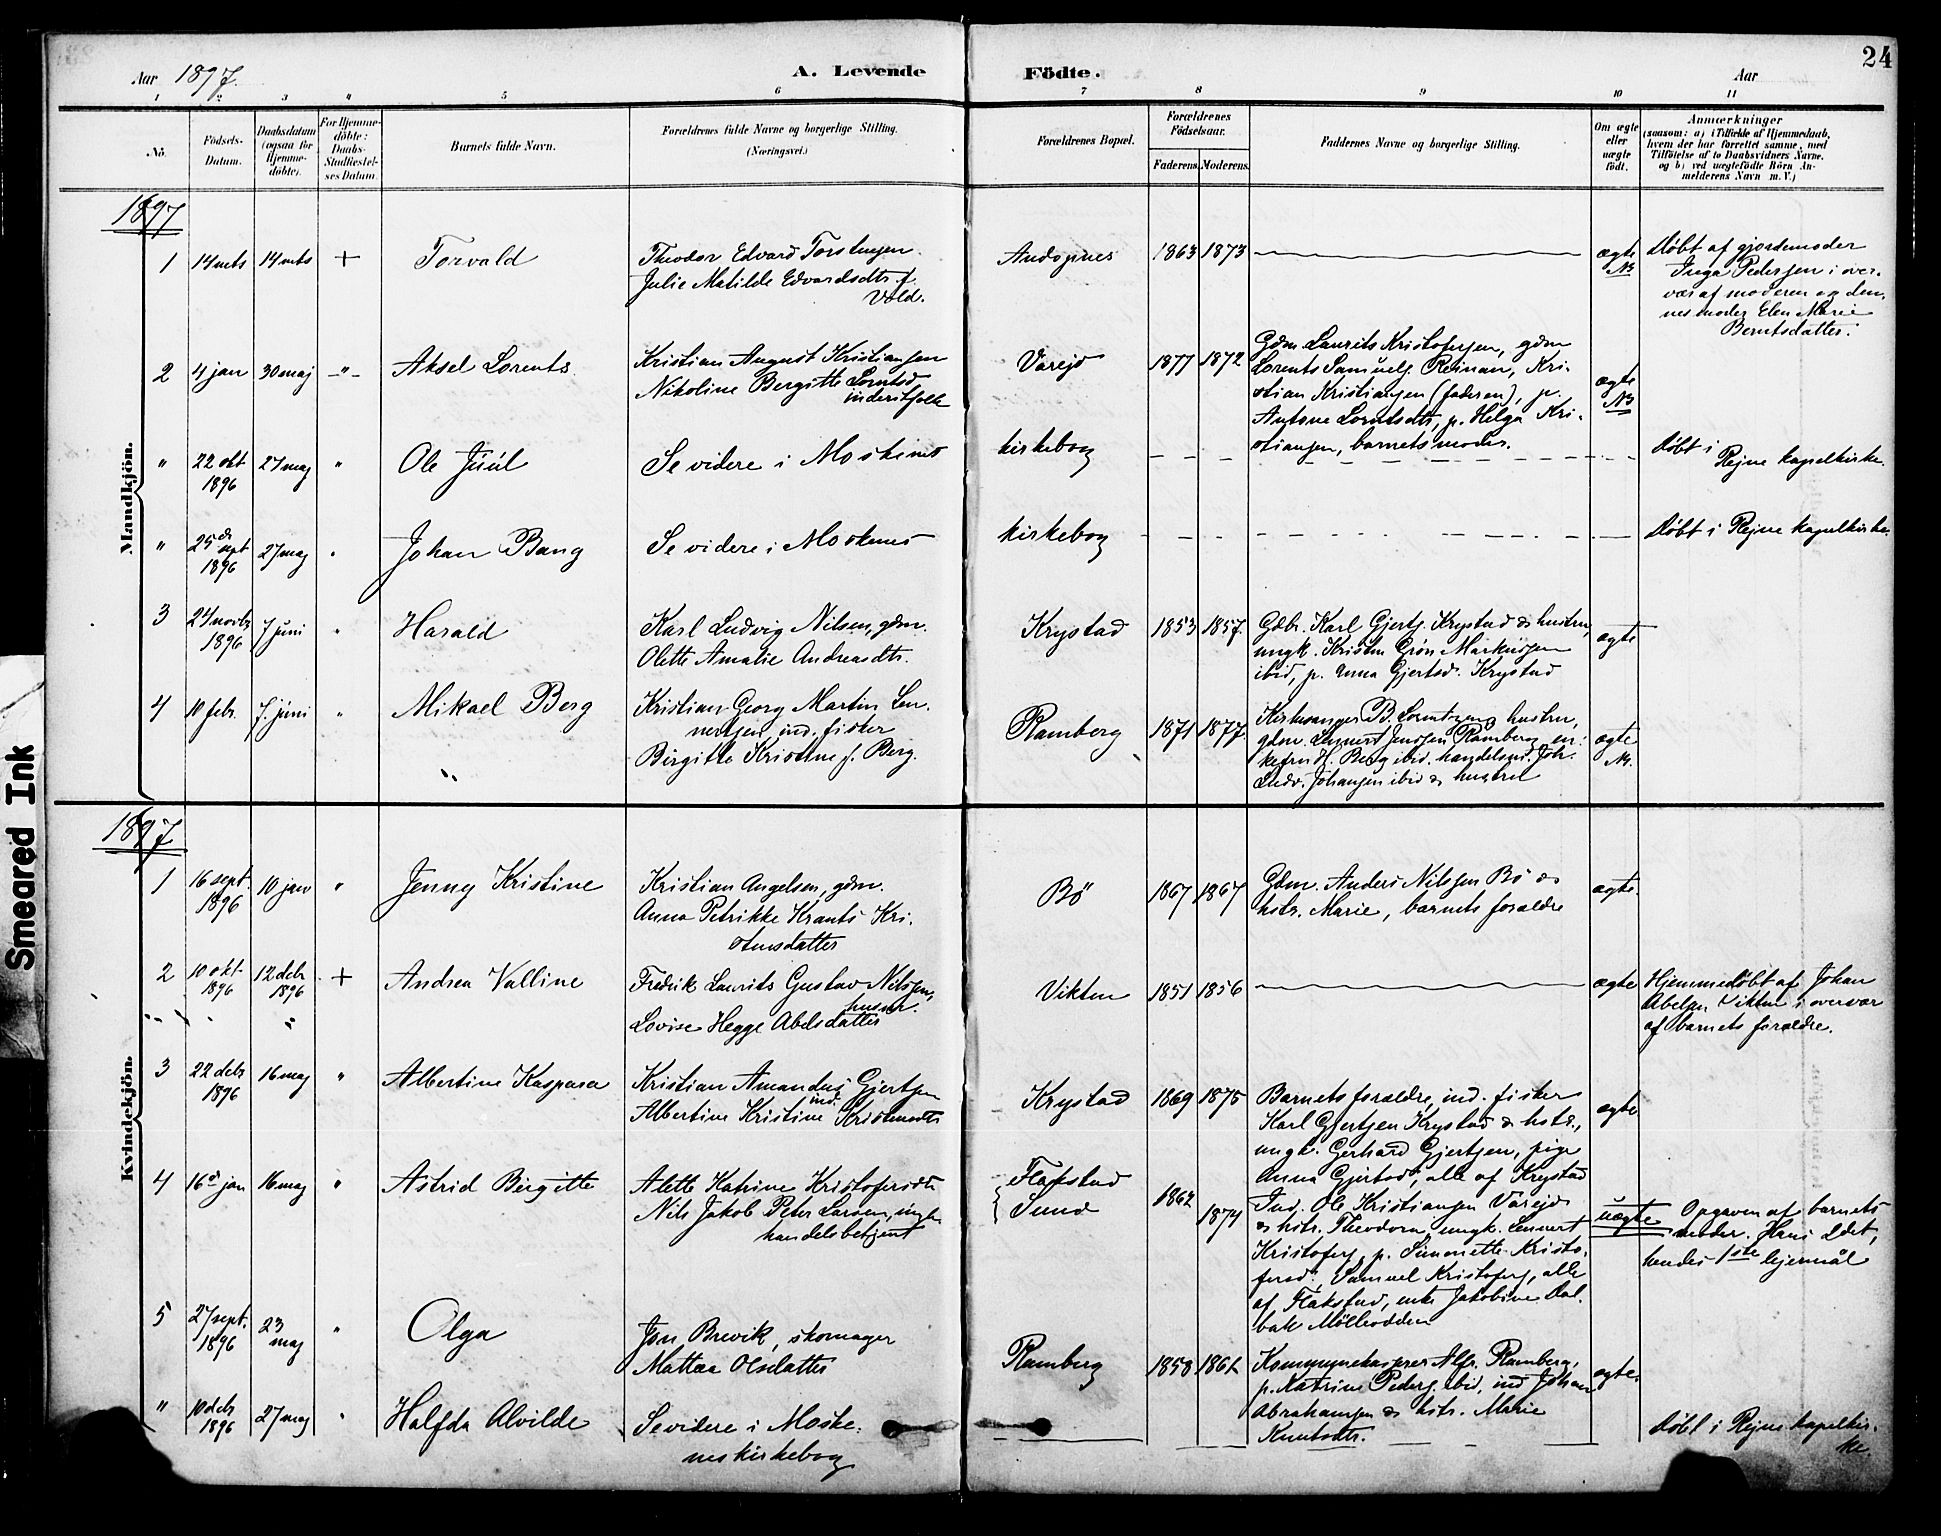 24
Aar 1897.
A. Levende
Födte.
Aar
1 2 3 4 5 6 7 8 9 10 11
No.
Födsels-
Datum.
Daabsdatum
(ogsaa for
Hjemme-
döbte).
For Hjemme-
döbte:
Daabs-
Stadfæstel-
ses Datum.
Barnets fulde Navn.
Forældrenes fulde Navne og borgerlige Stilling.
(Næringsvei.)
Forældrenes Bopæl.
Forældrenes
Födselsaar.
Faderens. Moderens.
Faddernes Navne og borgerlige Stilling.
Om ægte
eller
uægte
födt.
Anmærkninger
(saasom: a) i Tilfælde af Hjemmedaab,
hvem der har forrettet samme, med
Tilföielse af to Daabsvidners Navne.
og b) ved uægtefödte Börn An-
melderens Navn m. V.)
Mandkjön.
1897
1 14 mts 14 mts + Torvald
Theodor Edvard Torstensen
Julie Matilde Edvardsdtr. f.
Vold.
1863 1873
ægte
NB
Døbt af gjordemoder
Inga Pedersen i over-
vær af moderen og den-
nes moder Elen Marie
Berntsdatter.
2 4 jan 30 maj -"- Aksel Lorents
Kristian August Kristiansen
Nikoline Bergitte Lorntsd
inderstfolk
Varejd
1877 1872
Gdm Laurits Kristofersen, gdm
Lorents Samuels. Reinan, Kri-
stian Kristiansen (faderen), p.
Antone Lorntsdtr, p. Helga Kri-
stiansen, barnets moder.
ægte
NB
" 22 okt
1896
27 maj " Ole Júúl
Se videre i Moskenes
kirkebog
Døbt i
Rejne kapelkirke.
" 25de
sept
1896
27 maj " Johan Bang
Se videre i Moskenes
kirkebog
Døbt i Rejne kapelkirke.
3 24 novbr
1896
7 juni " Harald
Karl Ludvig Nilsen, gdm.
Olette Amalie Andreasdtr.
Krystad
1853 1857.
Gdbr. Karl Gjertj. Krystad & hustru,
ungk. Kristen Grøn Markussen
ibid, p. Anna Gjertsd. Krystad
ægte
4 10 febr. 7. juni " Mikael Berg
Kristian Georg Martin Len-
nertsen, ind. fisker
Birgitte Kristine f. Berg.
"
Ramberg
1871 1877.
Kirkesanger B. Lorntzen & hustru,
gdm. Lennert Jenssen Ramberg, en-
kefru H. Berg ibid. handelsm. Joh.
Ludv. Johansen ibid & hustru
ægte
NB.
Kvindekjön.
1897
1 16 sept.
1896
10 jan " Jenny Kristine
Kristian Angelsen, gdm.
Anna Petrikke Krants Kri-
stensdatter
Bö
1867 1867
Gdm. Anders Nilssen Bö &
hstr. Marie, barnets forældre
ægte.
2 10 okt
1896
12 debr
1896
+ Andrea Valline
Fredrik Laurits Gustav Nilssen,
husm.
Lovise Hegge Abelsdatter
Vikten
1851 1856
ægte
Hjemmedøbt af Johan
Abelsen Vikten i overvær
af barnets forældre.
3 22 debr
1896
16 maj " Albertine Kaspara
Kristian Amandus Gjertsen
ind.
Albertine Kristine Kristensdtr
Krystad
1869 1875
Barnets forældre, ind. fisker
Karl Gjertsen Krystad & hstr.,
ungk. Gerhard Gjertsen, pige
Anna Gjertsd., alle af Krystad
ægte
4 16d jan 16 maj " Astrid Birgitte
Alette Katrine Kristofersdtr
Nils Jakob Peter Larsen, ungk.
handelsbetjent
Flakstad
Sund
1874
Ind. Ole Kristiansen Varejd
& hstr. Theodora, ungk. Lennert
Kristofers, p. Simonette Kristo-
fersd., Samuel Kristofers, alle
af Flakstad, enke Jakobine Dal-
bak Mølnodden
uægte
Opgaven af barnets
moder. Hans 2det,
hendes 1ste lejermål
5 27 sept.
1896
23
maj
" Olga
Jon Brevik, skomager
Mattea Olsdatter
Ramberg
1858
Kommunekasserer Alfr. Ramberg,
p. Katrine Peders. ibid, ind Johan
Abrahamsen & hstr. Marie
Knutsdtr.
ægte.
" 10 debr
1896
27 maj " Halfda Alvilde
Se videre i Moske-
nes kirkebog
Døbt i Rejne kapelkir-
ke
Smeared Ink